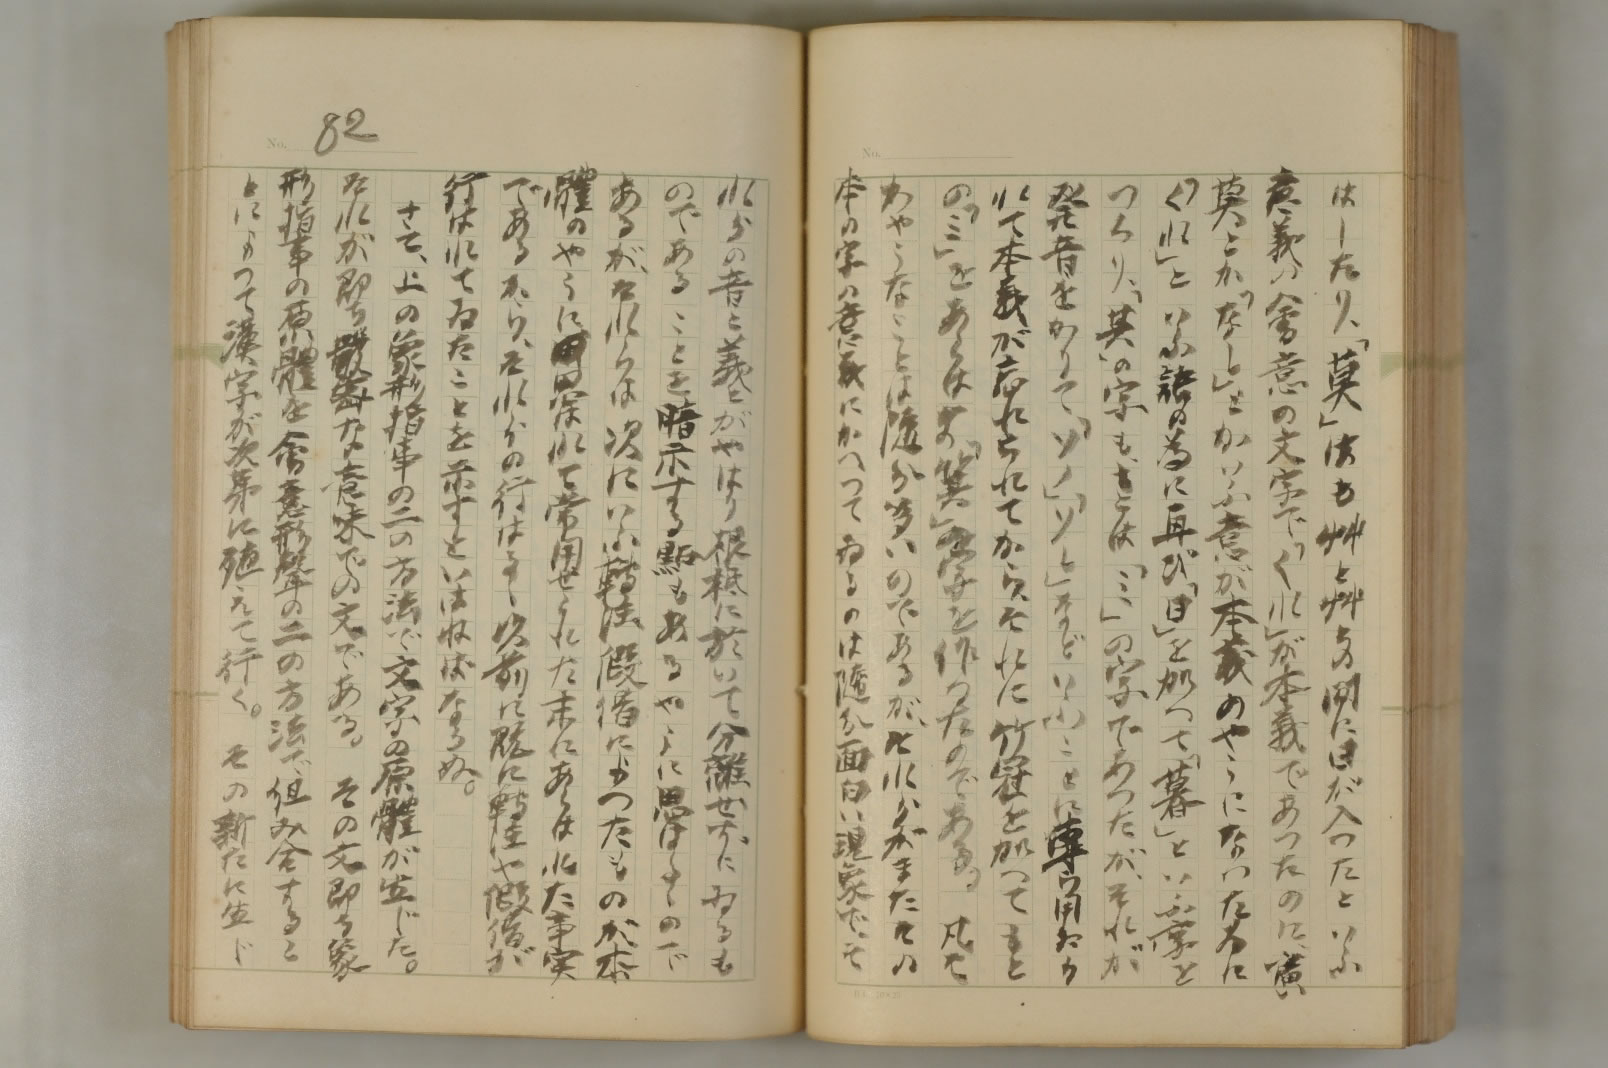 はしたり、「莫」は草も艸と艸との間に日が入つたといふ
意義の會意の文字で「くれ」が本義であつたのに、廣
莫とか「なし」とかいふ意が本義のやうになつた為に
「くれ」といふ語の為に再び「日」を加へて「暮」といふ字を
つくり、「其」の字も、もとは「𠀠」の字であつたが、それが
発音をかりて「ソノ」「ソレ」などいふことに専ら用ゐら
れて本義が忘れられてから、それに竹冠を加へてもと
の「𠀠」をあらはす「箕」の字を作つたのである。凡そ
かやうなことは随分多いのであるが、それらがまたその
本の字の意義にかへつてゐるのは随分面白い現象で、そ
No. 82
れらの音と義とがやはり根柢に於いて分離せずにゐるも
のであることを暗示する點もあるやうに思はするので
あるが、それらは次にいふ轉注假借によつたものが本
體のやうに思はれて常用せられた末にあらはれた事実
であるから、それらの行はるゝ以前に既に轉注や假借が
行はれてゐたことを示すといはねばならぬ。
さて、上の象形指事の二の方法で文字の原體が生じた。
それが即ち嚴密な意味での文である。その文即ち象
形指事の原體を會意形聲の二の方法で組み合すること
とによつて漢字が次第に殖えて行く。その新たに生じ
No.